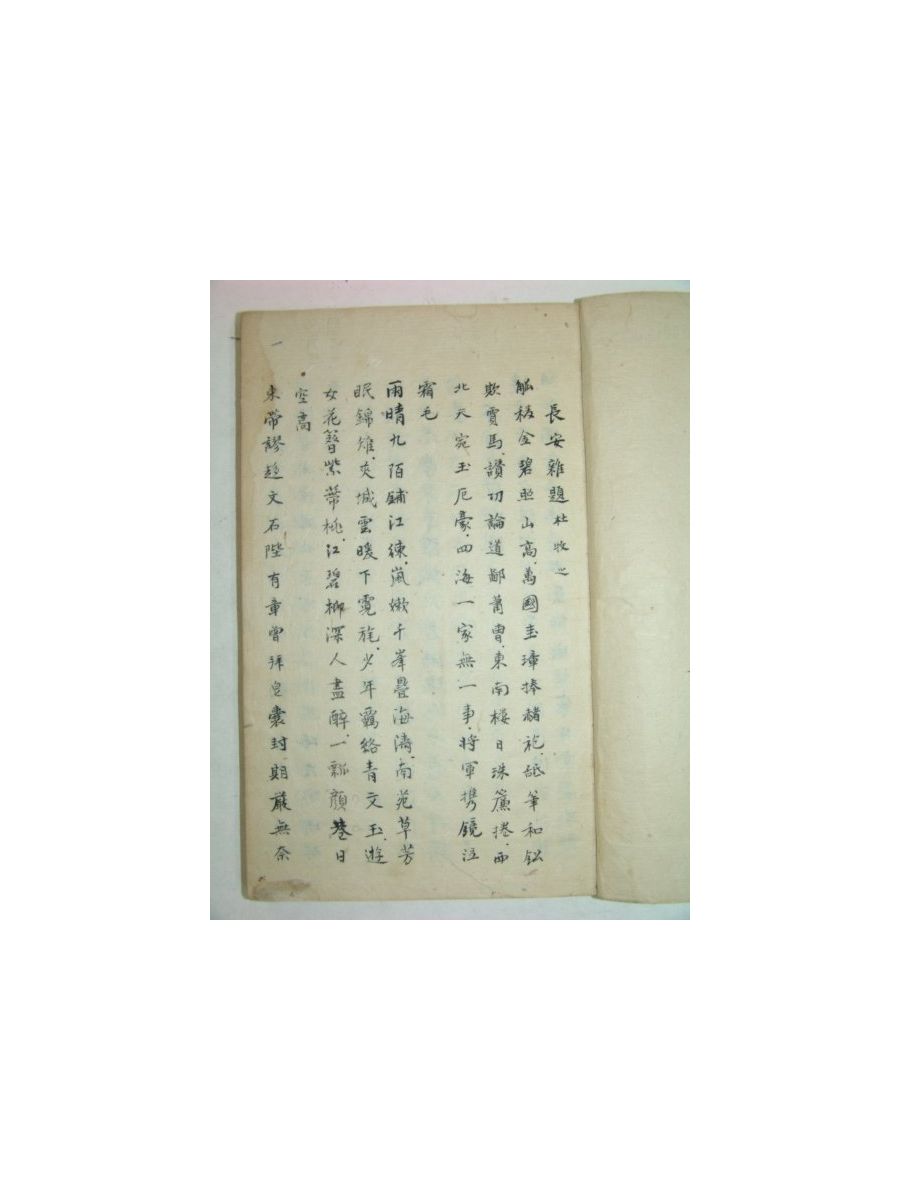 長安雜題 杜牧之
觚稜金碧照山高萬國圭璋捧赭袍舐筆和鈆
欺賈馬讚功論道鄙蕭曹東南樓日珠簾捲西
北天宛玉厄豪四海一家無一事將軍携鏡泣
霜毛
雨晴九陌鋪江練嵐嫩千峯疊海濤南苑草芳
眠錦雉夾城雲暖下霓旄少年羈絡青文玉遊
女花簪紫蔕桃江碧柳深人盡醉一瓢顔巷日
空高
束帶謬趍文石陛有章曾拜皂囊封期嚴無奈